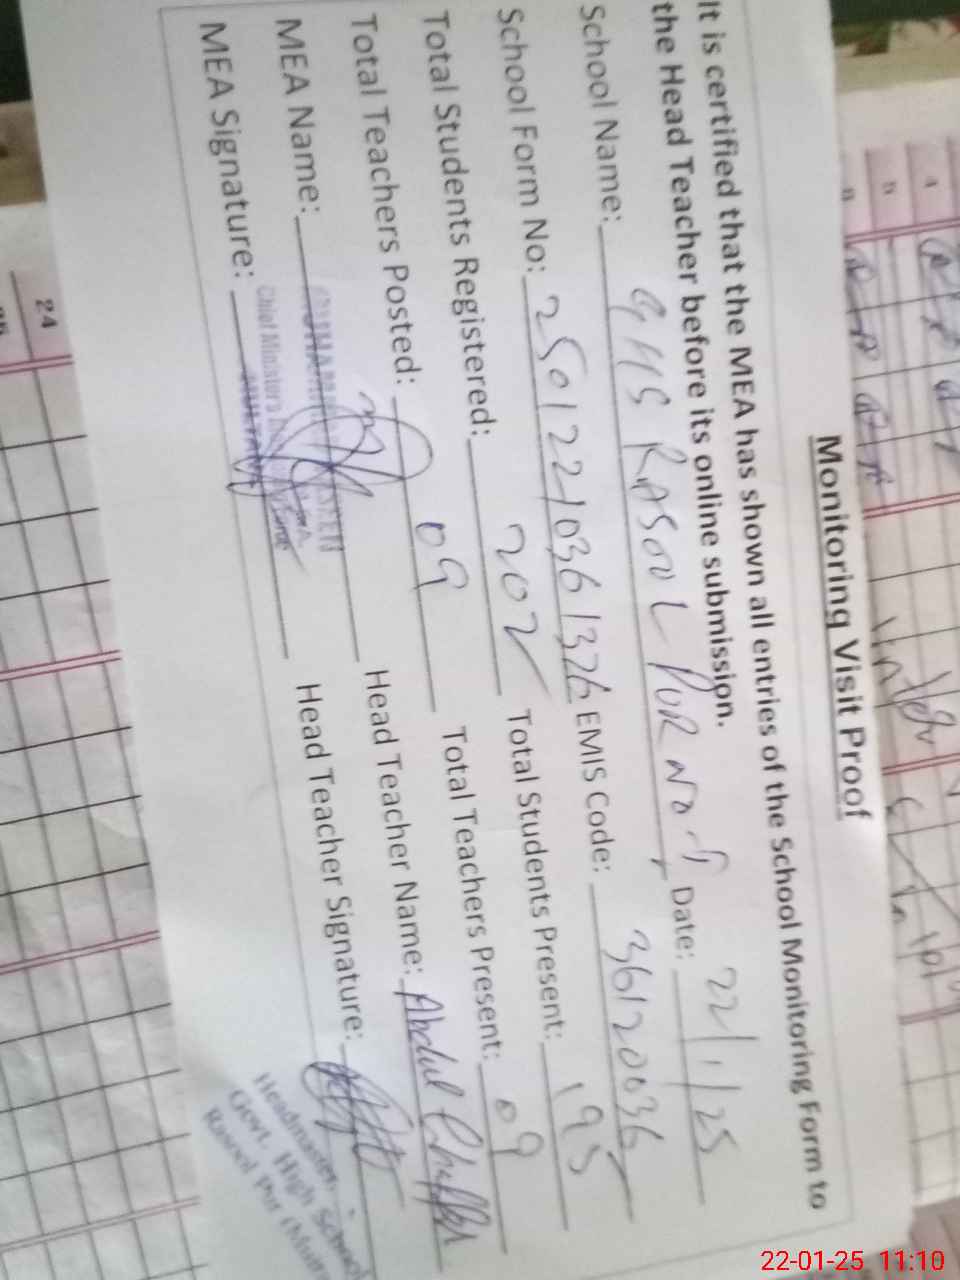 Monitoring Visit Proof
It is certified that the MEA has shown all entries of the School Monitoring Form to
the Head Teacher before its online submission.
School Name: GHS RASOOL PUR NO Date: 22/1/25
School Form No: 25012210361326 EMIS Code: 36120036
Total Students Registered: 202 Total Students Present: 195
Total Teachers Posted: 09 Total Teachers Present: 09
MEA Name: Head Teacher Name: Abdul Ghaffar
MEA Signature: Head Teacher Signature:
Chief Ministers
Headmaster,
Govt. High School
Rasool Pur
4
5
24
22-01-25 11:10